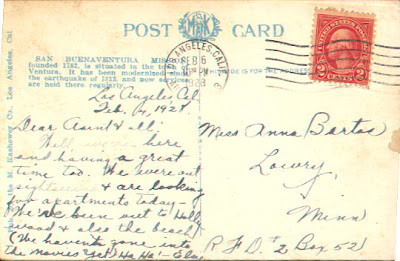 POST CARD
SAN BUENAVENTURA MISSION
founded 1782, is situated in the town of
Ventura. It has been modernized since
the earthquake of 1812, and now services
are held there regularly.
THIS SIDE IS FOR THE ADDRESS
LOS ANGELES, CALIF
FEB 6
PM
1928
2 CENTS 2
Los Angeles, Cal
Feb.
Dear Aunt & all:
Well, were here
and having a great
time too. We were out
sightseeing & are looking
for apartments today -
We've been out to Holly
wood & also the beach
(We haven't gone into
the movies "yet" Ha Ha! - Elsie
Miss Anna Bartos
Lowry,
Minn
R F D. #2 Box 52
M. Kashower Co., Los Angeles, Cal.